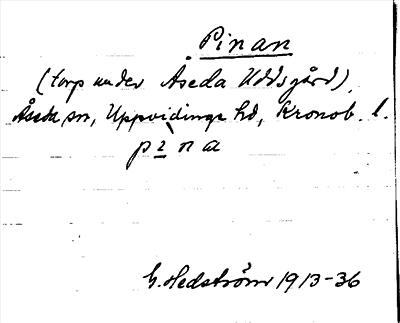 Pinan
(torp under Åseda Uddsgård)
Åseda sn, Uppvidinge hd, Kronob. l.
pì na
G. Hedström 1913-36